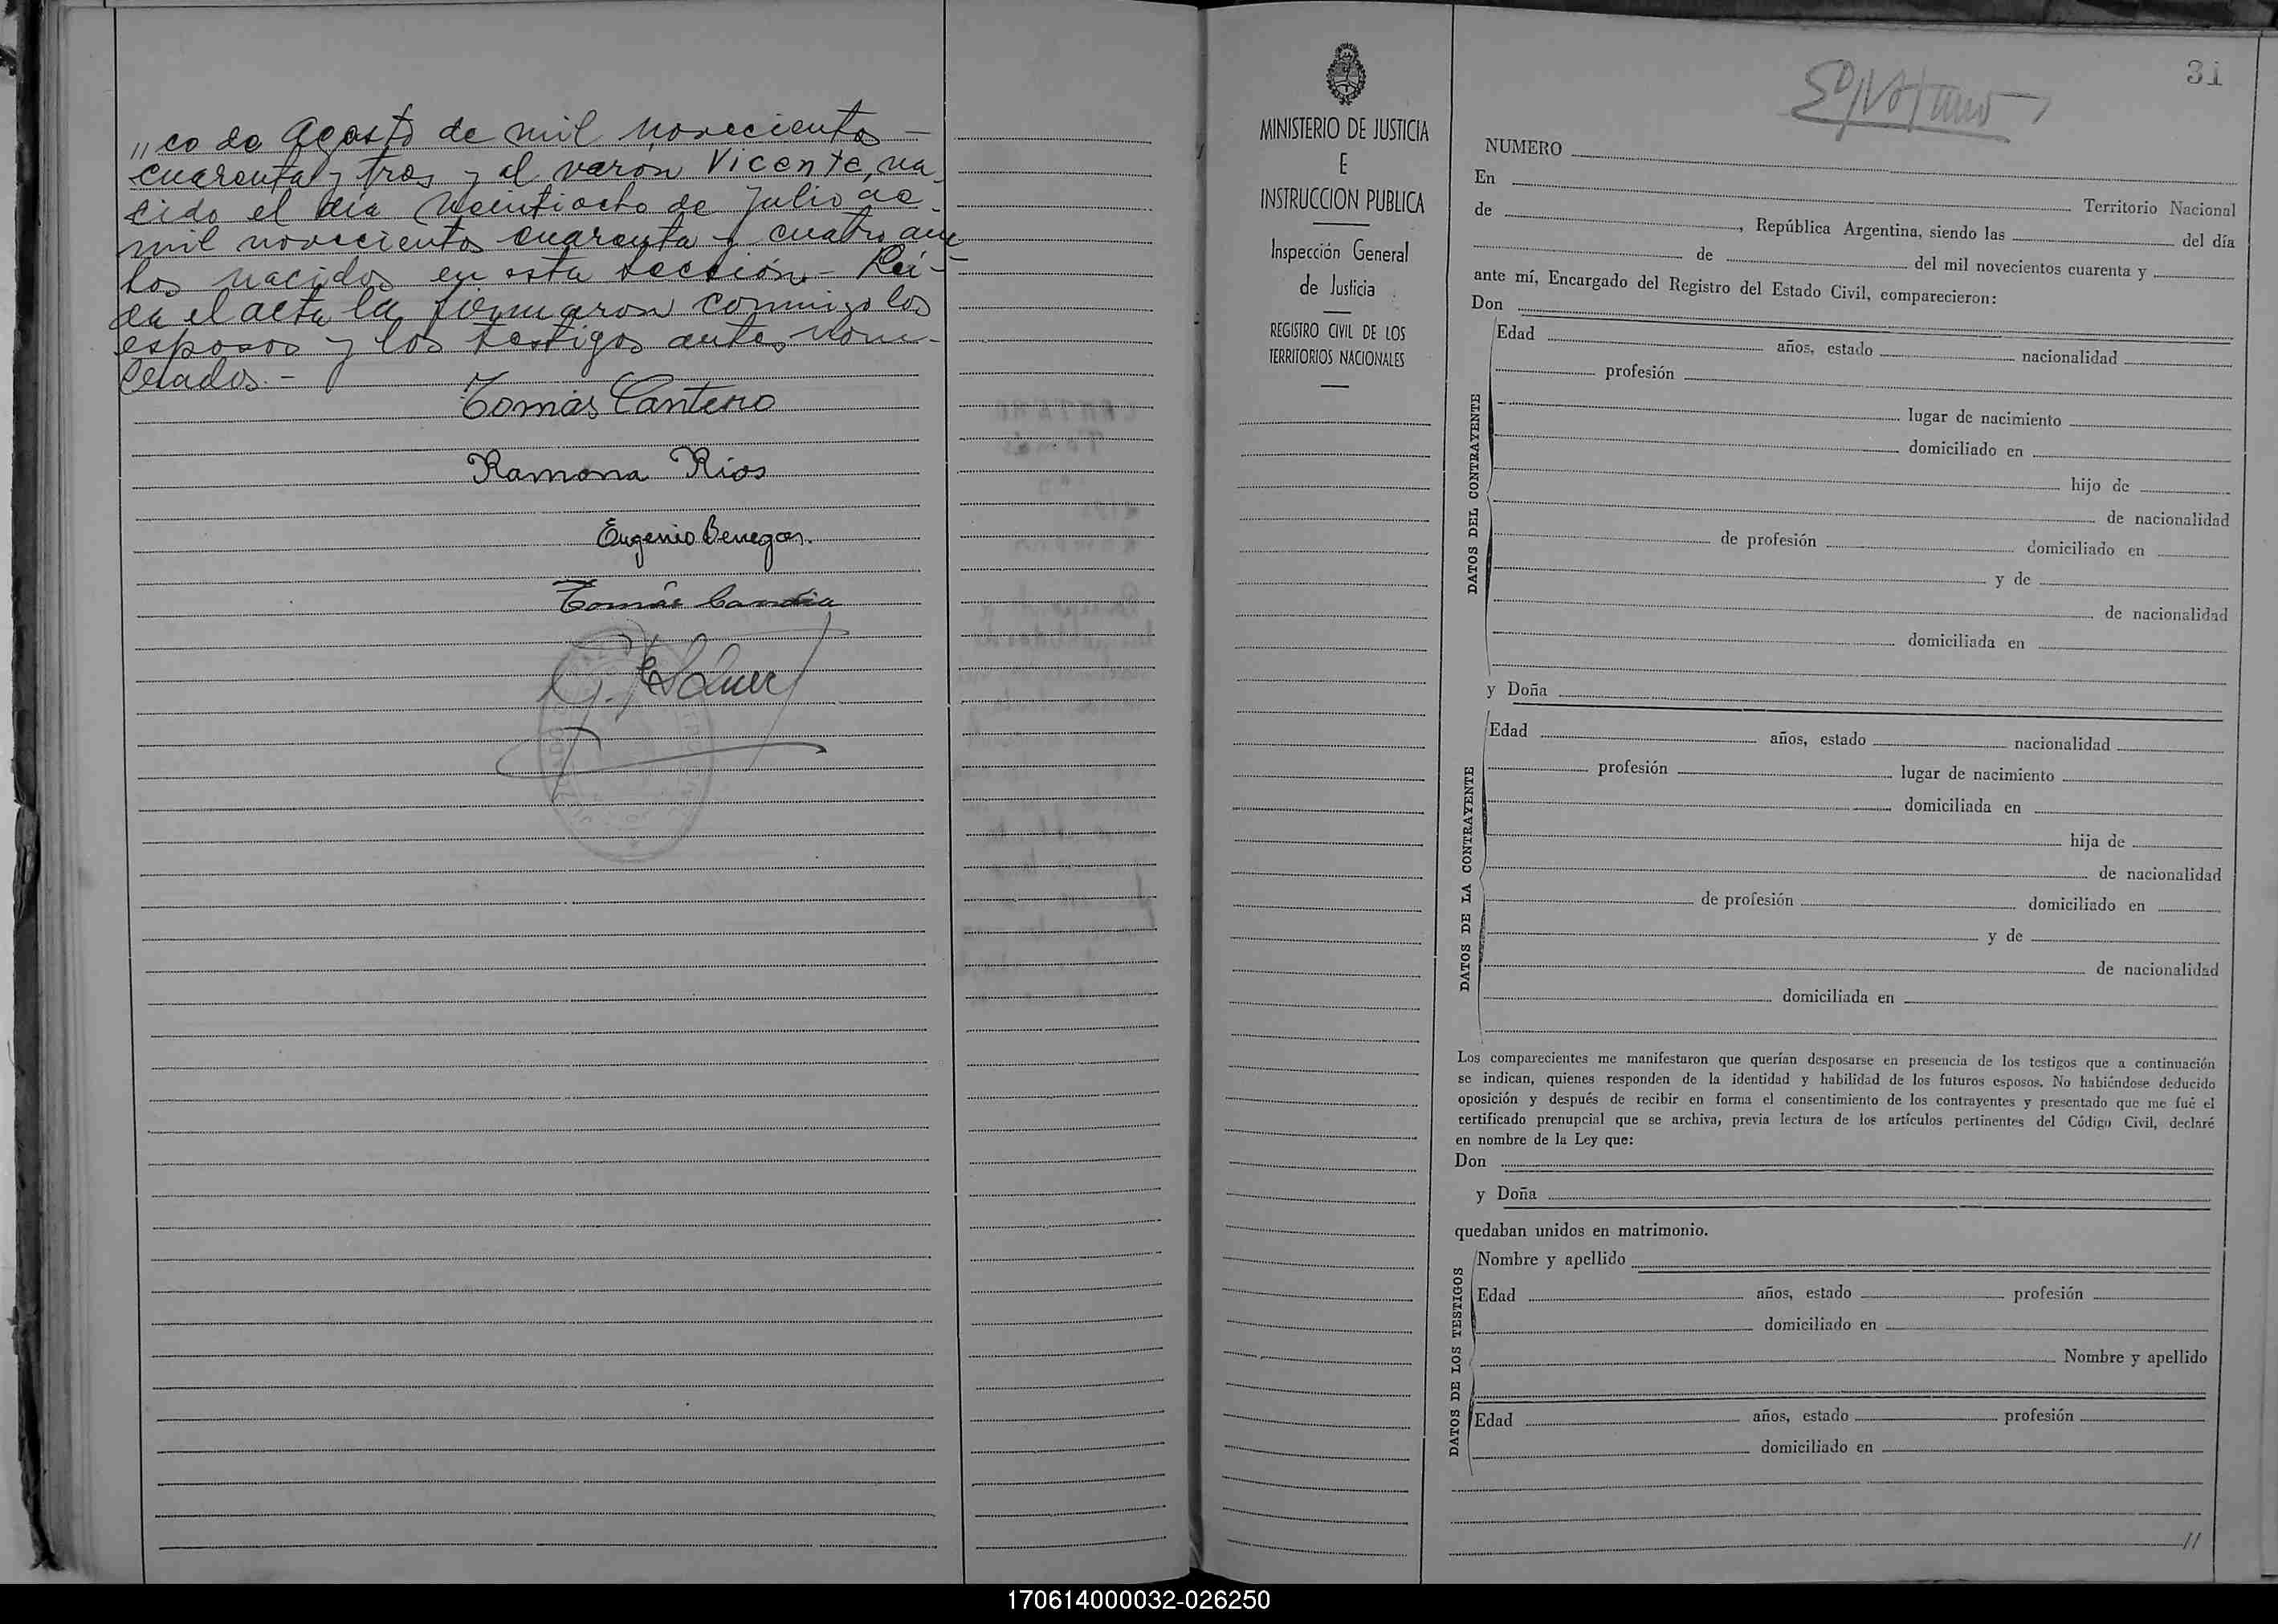 "co de Agosto de mil novecientos -
cuarenta y tres y el varon Vicente, na-
cido el dia veintiocho de Julio de
mil novecientos cuarenta y cuatro am-
bos nacidos en esta sección - Leí-
da el acta la firmaron conmigo los
esposos y los testigos antes nom-
brados. -
Tomás Cantero
Ramona Rios
Eugenio Benegas.
Tomás Candia
MINISTERIO DE JUSTICIA
E
INSTRUCCION PUBLICA
Inspección General
de Justicia
REGISTRO CIVIL DE LOS
TERRITORIOS NACIONALES
31
NUMERO
En
Territorio Nacional
de , República Argentina, siendo las del día
de del mil novecientos cuarenta y
ante mí, Encargado del Registro del Estado Civil, comparecieron:
Don
DATOS DEL CONTRAYENTE
Edad años, estado nacionalidad
profesión
lugar de nacimiento
domiciliado en
hijo de
de nacionalidad
de profesión domiciliado en
y de
de nacionalidad
domiciliada en
y Doña
DATOS DE LA CONTRAYENTE
Edad años, estado nacionalidad
profesión lugar de nacimiento
domiciliada en
hija de
de nacionalidad
de profesión domiciliado en
y de
de nacionalidad
domiciliada en
Los comparecientes me manifestaron que querían desposarse en presencia de los testigos que a continuación
se indican, quienes responden de la identidad y habilidad de los futuros esposos. No habiéndose deducido
oposición y después de recibir en forma el consentimiento de los contrayentes y presentado que me fué el
certificado prenupcial que se archiva, previa lectura de los artículos pertinentes del Código Civil, declaré
en nombre de la Ley que:
Don
y Doña
quedaban unidos en matrimonio.
DATOS DE LOS TESTIGOS
Nombre y apellido
Edad años, estado profesión
domiciliado en
Nombre y apellido
Edad años, estado profesión
domiciliado en
//
170614000032-026250